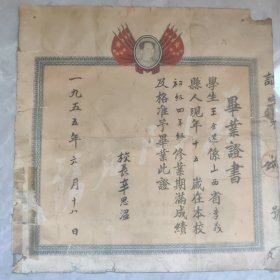 畢業證書
學生王古述係山西省孝義
縣人現年十五歲在本校
初級四年級修業期滿成績
及格准予畢業此證
校長辛思溫
一九五五年六月十八日
號